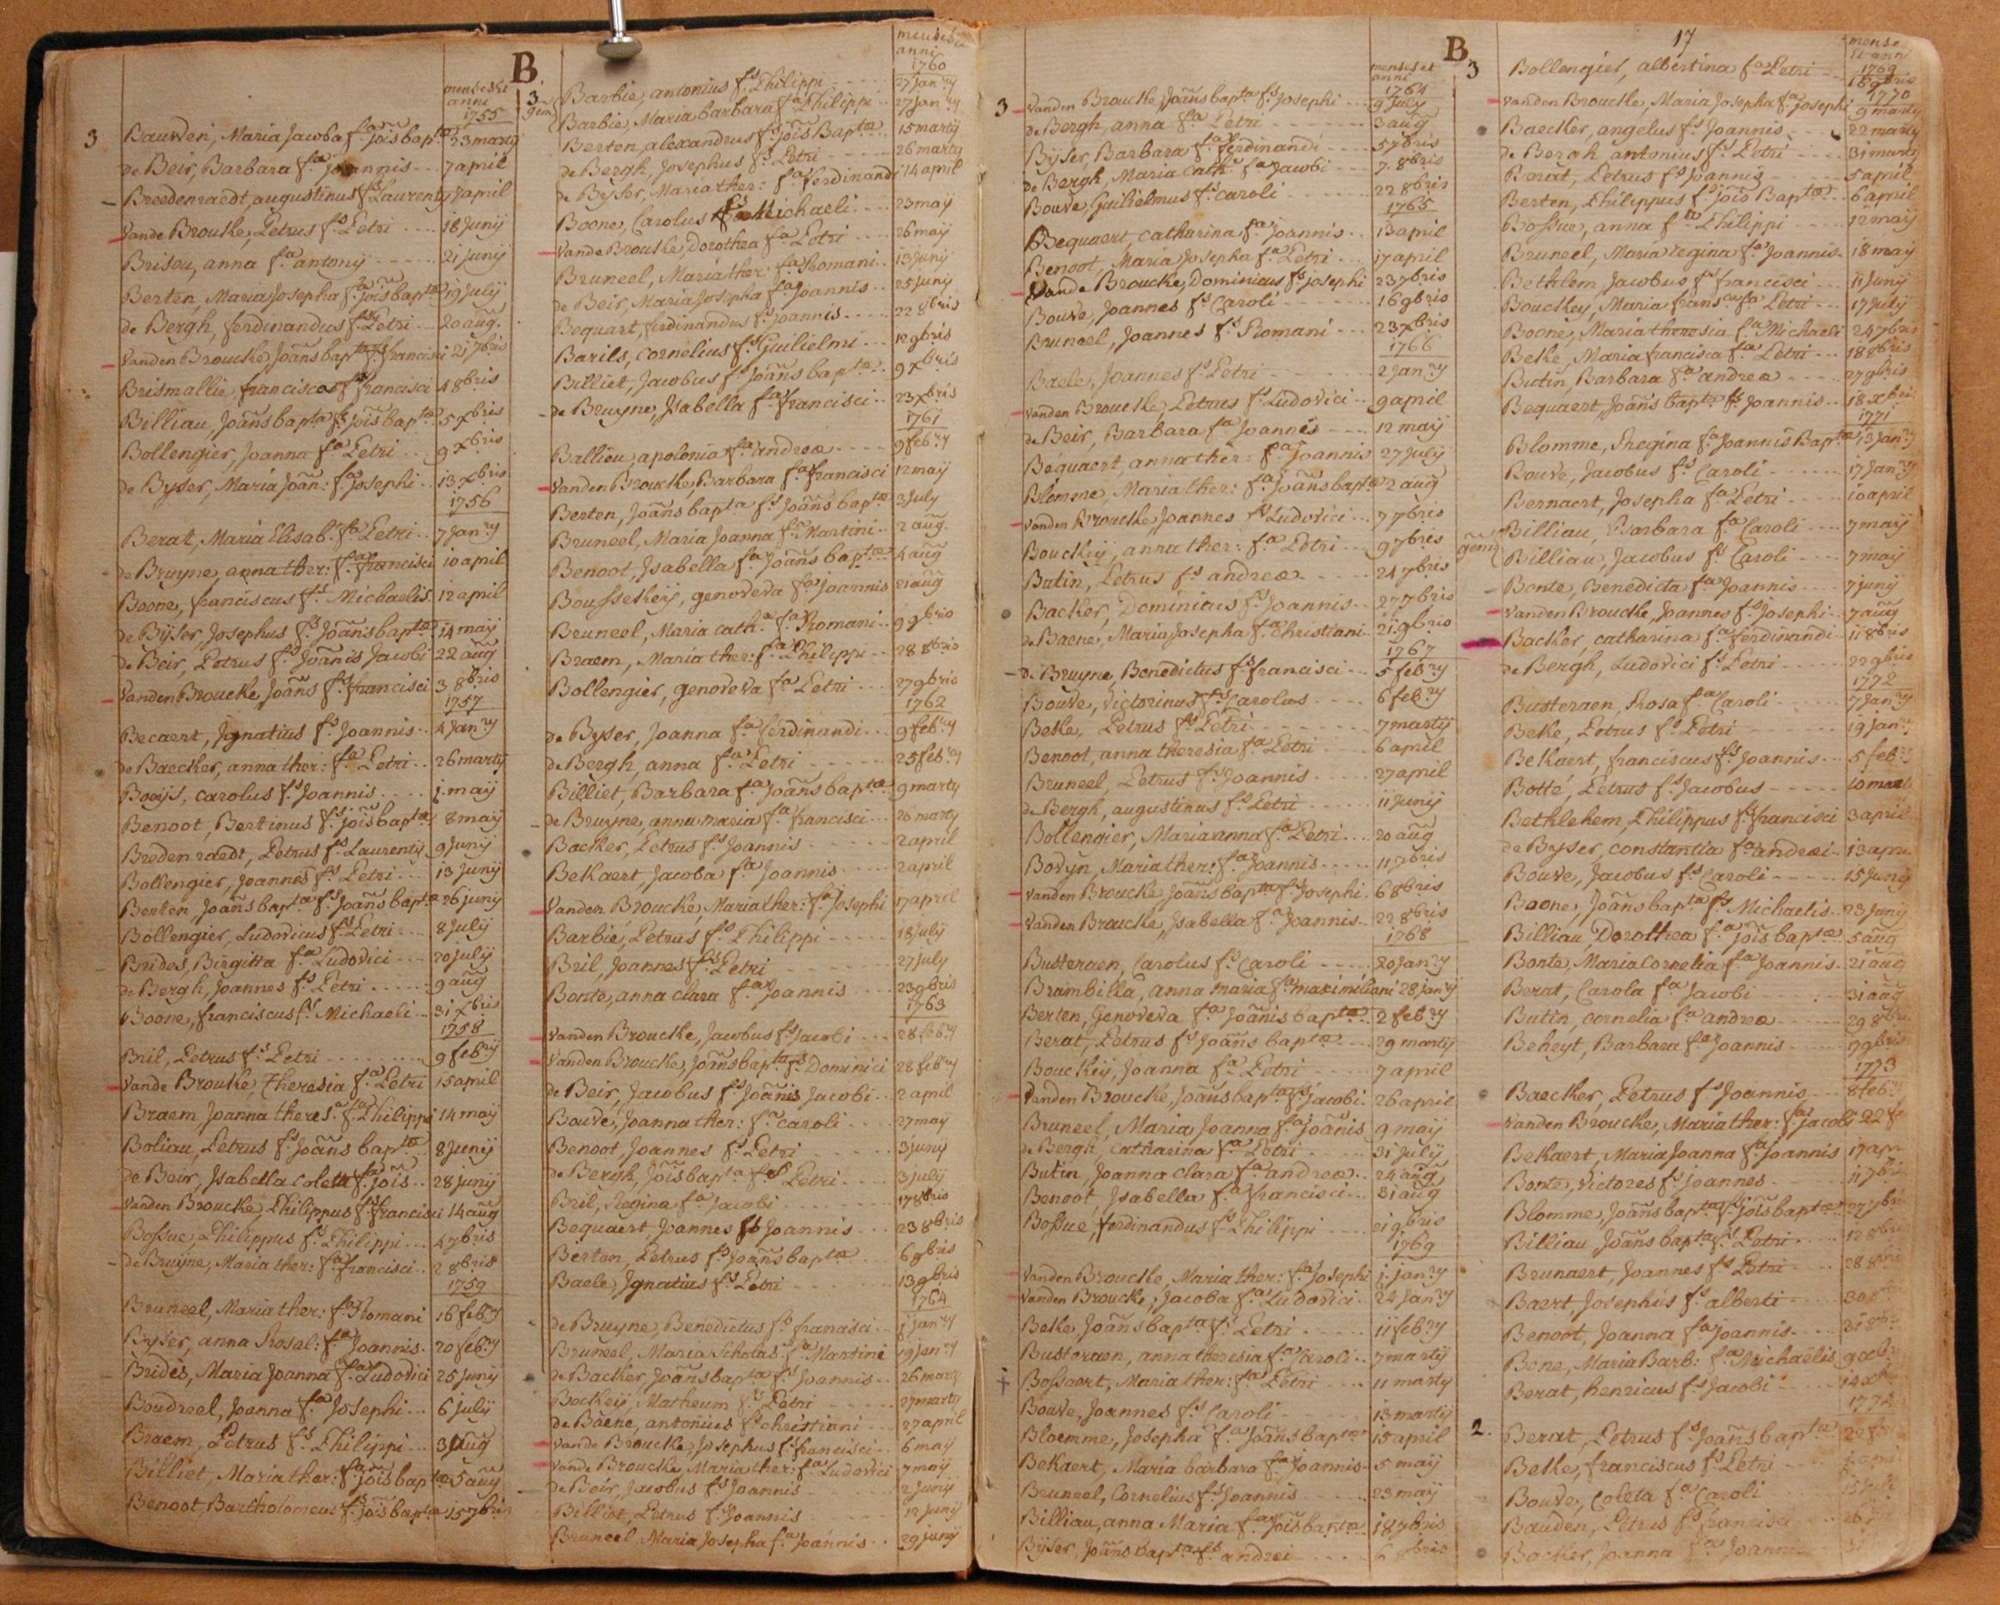 B
menses et
anni
1755
3 Bauwen, Maria Jacoba fa Jois bapta 23 marty
de Beir, Barbara fa Joannis 7 april
Breedenraedt, augustinus fs Laurenty 7 april
Vande Brouke, Petrus fs Petri 18 Junij
Briseu, anna fa antonij 21 Junij
Berten, Maria Josepha fa Jois bapta 19 July
de Bergh, ferdinandus fs Petri 20 aug.
Vanden Broucke, Joans bapta fs francisci 21 7bris
Brismallie, franciscus fs francisci 4 8bris
Billiau, Joans bapta fs Jois bapta 5 xbris
Bollengier, Joanna fa Petri 9 xbris
de Byser, Maria Joan: fa Josephi 13 xbris
1756
Berat, Maria Elisab. fa Petri 7 Janry
de Bruyne, anna ther: fa francisci 10 april
Boone, franciscus fs Michaelis 12 april
de Bijser, Josephus fs Joans bapta 14 maij
de Beir, Petrus fs Joannis Jacobi 22 aug
Vanden Broucke, Joans fs francisci 3 8bris
1757
Becaert, Ignatius fs Joannis 4 Janry
de Baecker, anna ther: fa Petri 26 marty
Booijs, carolus fs Joannis 1. maij
Benoot, Bertinus fs Jois bapta 8 maij
Bredenraedt, Petrus fs Laurentij 9 Junij
Bollengier, Joannes fs Petri 13 Junij
Berten, Joans bapta fs Joans bapta 26 junij
Bollengier, Ludovicus fs Petri 8 July
Brides, Birgitta fa Ludovici 20 July
de Bergh, Joannes fs Petri 9 aug
Boone, franciscus fs Michaeli 31 xbris
1758
Bril, Petrus fs Petri 9 febry
Vande Brouke, Theresia fa Petri 15 april
Braem Joanna theres. fa Philippi 14 maij
Boliau, Petrus fs Joans bapta 8 Junij
de Beir, Isabella coleta fa Jois 28 Junij
Vanden Broucke, Philippus fs francisci 14 aug
Bossue, Philippus fs Philippi 4 7bris
de Bruyne, Maria ther: fa francisci 2 8bris
1759
Bruneel, Maria ther: fa Romani 16 febry
Byser, anna Rosal: fa Joannis 20 febry
Bridés, Maria Joanna fa Ludovici 25 Junij
Boudreel, Joanna fa Josephi 6 july
Braem, Petrus fs Philippi 3 aug
Billiet, Maria ther: fa Jois bapta 5 aug
Benoot Bartholomeus fs Jois bapta 15 7bris
menses et
anni
1760
3
gem
Barbie, antonius fs Philippi 27 Janry
Barbie, Maria barbara fa Philippi 27 Janry
Berten, alexandrus fs Jois Bapta 15 martij
de Bergh, Josephus fs Petri 26 marty
de Byser, Maria ther: fa Ferdinandi 14 april
Boone, Carolus fs Michaeli 23 may
Vande Brouke, Dorothea fa Petri 26 may
Bruneel, Maria ther: fa Romani 13 Junij
de Beir, Maria Josepha fa Joannis 25 juny
Bequart, ferdinandus fs Joannis 22 8bris
Barils, cornelius fs Guilielmi 12 9bris
Billiet, Jacobus fs Joans bapta 9 xbris
de Bruyne, Isabella fa francisci 23 xbris
1761
Ballieu, apolonia fa andreæ 9 febry
Vanden Broucke, Barbara fa francisci 12 maij
Berten, Joans bapta fs Joans bapta 3 july
Bruneel, Maria Joanna fa Martini 2 aug.
Benoot, Isabella fa Joans bapta 4 aug
Bousselkeij, genoveva fa Joannis 21 aug
Bruneel, Maria cath. fa Romani 9 9bris
Braem, Maria ther: fa Philippi 28 8bris
Bollengier, genoveva fa Petri 27 9bris
1762
de Byser, Joanna fa ferdinandi 9 febry
de Bergh, anna fa Petri 25 febry
Billiet, Barbara fa Joans bapta 9 marty
de Bruyne, anna maria fa francisci 20 marty
Backer, Petrus fs Joannis 2 april
Bekaert, Jacoba fa Joannis 2 april
Vanden Broucke, Maria ther: fa Josephi 17 april
Barbié, Petrus fs Philippi 18 july
Bril, Joannes fs Petri 27 july
Bonte, anna clara fa Joannis 23 9bris
1763
Vanden Broucke, Jacobus fs Jacobi 28 febry
Vanden Broucke, Joans bapta fs Dominici 28 febry
de Beir, Jacobus fs Joanis Jacobi 2 april
Bouvé, Joanna ther: fa caroli 27 may
Benoot, Joannes fs Petri 3 juny
de Bergh, Jois bapta fs Petri 3 july
Bril, Regina fa Jacobi 17 8bris
Bequaert Joannes fs Joannis 23 8bris
Berten, Petrus fs Joans bapta 6 9bris
Baele, Ignatius fs Petri 13 9bris
1764
de Bruyne, Benedictus fs francisci 1 janry
Bruneel, Maria Scholas. fa Martini 19 janry
de Backer, Joans bapta fs Joannis 26 marty
Bockeij Matheum fs Petri 27 marty
de Baene, antonius fs christiani 27 april
Vande Broucke, Josephus fs francisci 6 maij
Vande Broucke, Maria ther: fa Ludovici 7 maij
de Beir, Jacobus fs Joannis 2 junij
Billiet, Petrus fs Joannis 12 junij
Bruneel Maria Josepha fa Joannis 29 junij
B
menses et
anni
1764
3 Vanden Broucke, Joans bapta fs Josephi 9 july
de Bergh, anna fa Petri 3 aug
Byser, Barbara fa ferdinandi 5 7bris
de Bergh, Maria cath. fa Jacobi 7. 8bris
Bouve, Guilielmus fs caroli 22 8bris
1765
Bequaert, catharina fa Joannis 13 april
Benoot, Maria Josepha fa Petri 17 april
Vande Broucke, Dominicus fs Josephi 23 7bris
Bouve, Joannes fs Caroli 16 9bris
Bruneel, Joannes fs Romani 23 xbris
1766
Baele, Joannes fs Petri 2 Janry
Vanden Broucke, Petrus fs Ludovici 9 april
de Beir, Barbara fa Joannis 12 maij
Bequaert, anna ther: fa Joannis 27 july
Blomme, Maria ther: fa Joans bapta 2 aug
Vanden Broucke, Joannes fs Ludovici 7 7bris
Bouckeij, anna ther: fa Petri 9 7bris
Butin, Petrus fs andreæ 24 7bris
Backer, Dominicus fs Joannis 27 7bris
de Baene, Maria Josepha fa christiani 21 9bris
1767
de Bruyne, Benedictus fs francisci 5 febry
Bouve, victorinus fs Carolus 6 febry
Beke, Petrus fs Petri 7 martij
Benoot, anna theresia fa Petri 6 april
Bruneel, Petrus fs Joannis 27 april
de Bergh, augustinus fs Petri 11 Junij
Bollengier, Marianna fa Petri 20 aug
Bovijn, Maria ther: fa Joannis 11 7bris
Vanden Broucke Joans bapta fs Josephi 6 8bris
Vanden Broucke, Isabella fa Joannis 22 8bris
1768
Busteraen, Carolus fs Caroli 20 janry
Brambilla, anna maria fa maximiliani 28 janry
Berten, Genoveva fa Joannis bapta 2 febry
Berat, Petrus fs Joans bapta 29 marty
Bouckij, Joanna fa Petri 7 april
Vanden Broucke, Joans bapta fs Jacobi 26 april
Bruneel, Maria Joanna fa Joannis 9 maij
de Bergh, Catharina fa Petri 31 july
Butin, Joanna clara fa andreæ 24 aug
Benoot, Isabella fa francisci 31 aug
Bossue, ferdinandus fs Philippi 21 9bris
1769
Vanden Broucke, Maria ther: fa Josephi 1. janry
Vanden Broucke, Jacoba fa Ludovici 24 janry
Beke Joans bapta fs Petri 11 febry
Busteraen, anna theresia fa Caroli 7 martij
Bossaert, Maria ther: fa Petri 11 marty
Bouve, Joannes fs Caroli 13 martij
Bloemme, Josepha fa Joans bapta 15 april
Bekaert, Maria barbara fa Joannis 5 maij
Bruneel, Cornelius fs Joannis 23 maij
Billiau, anna Maria fa Jois bapta 18 7bris
Byser, Joans bapta fs andrei 6 8bris
17
mense
et anni
1769
3 Bollengier, albertina fa Petri
1770
Vanden Broucke, Maria Josepha fa Josephi 9 marty
Baecker, angelus fs Joannis 22 marty
de Bergh antonius fs Petri 31 marty
Berat, Petrus fs Joannis 5 april
Berten, Philippus fs Jois Bapta 6 april
Bossue, anna fa Philippi 12 maij
Bruneel, Maria regina fa Joannis 18 maij
Bethlem, Jacobus fs francisci 11 Junij
Bouckey, Maria franca fa Petri 17 July
Boone, Maria theresia fa Michaeli 24 7bris
Beke, Maria francisca fa Petri 18 8bris
Butin, Barbara fa andreæ 27 9bris
Bequaert, Joans bapta fs Joannis 18 xbris
1771
Blomme, Regina fa Joannis Bapta 13 janry
Bouve, Jacobus fs Caroli 17 Janry
Bernaert, Josepha fa Petri 10 april
gem
Billiau, Barbara fa Caroli 7 maij
Billiau, Jacobus fs Caroli 7 maij
Bonte, Benedicta fa Joannis 7 junij
Vanden Broucke, Joannes fs Josephi 7 aug
Backer, catharina fa ferdinandi 11 8bris
de Bergh, Ludovici fs Petri 22 9bris
1772
Busteraen, Rosa fa Caroli 7 Janry
Beke, Petrus fs Petri 19 Janry
Bekaert, franciscus fs Joannis 5 feb
Botté, Petrus fs Jacobus 10 mart
Bethlehem, Philippus fs francisci 3 april
de Byser, constantia fa andreæi 13 apri
Bouve, Jacobus fs Caroli 15 Junij
Baone, Joans bapta fs Michaelis 23 Junij
Billiau, Dorothea fa Jois bapta 5 aug
Bonte, Maria Cornelia fa Joannis 21 aug
Berat, Carola fa Jacobi 31 aug
Butin, cornelia fa andreæ 29 8bris
Beheyt, Barbara fa Joannis 19 9bris
1773
Baecker, Petrus fs Joannis 8 feb
Vanden Broucke, Maria ther: fa Jacobi 22 f
Bekaert, Maria Joanna fa Joannis 17 apr
Bonte, victores fs Joannes 11 7bri
Blomme, Joans bapta fs Jois bapta 27 7bri
Billiau Joans bapta fs Petri 12 8bri
Brunaert, Joannes fs Petri 28 8bri
Baert, Josephus fs alberti
Benoot, Joanna fa Joannis
Bone, Maria Barb: fa Michaëlis
Berat, henricus fs Jacobi
1774
2. Berat, Petrus fs Joans bapta
Beke, franciscus fs Petri
Bouve, Coleta fa Caroli
Bauden, Petrus fs francisci
Backer, Joanna fa Joannis